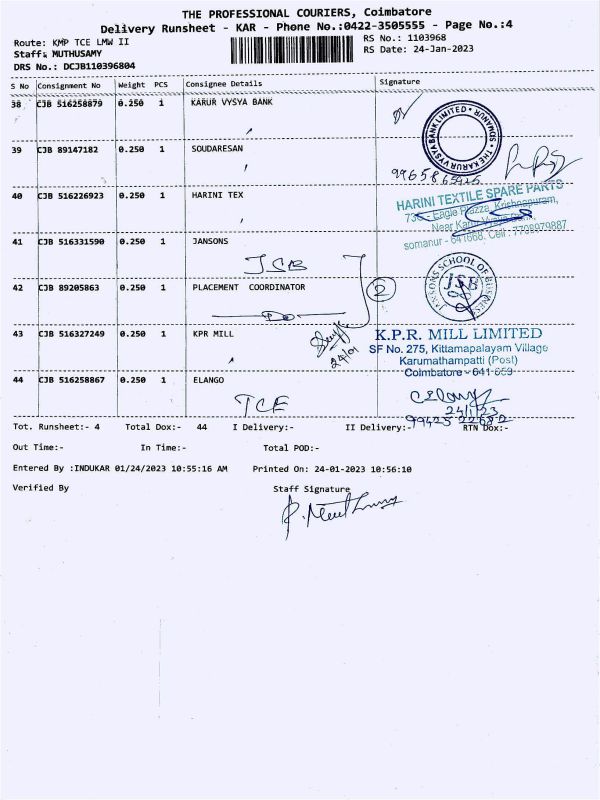 THE PROFESSIONAL COURIERS, Coimbatore
Delivery Runsheet - KAR - Phone No.:0422-3505555 - Page No.:4
Route: KMP TCE LMW II
RS No.: 1103968
Staff: MUTHUSAMY
RS Date: 24-Jan-2023
DRS No.: DCJB110396804
S No Consignment No Weight PCS Consignee Details Signature
38 CJB 516258879 0.250 1 KARUR VYSYA BANK
THE KARUR VYSYA BANK LIMITED * SOMANUR *
39 CJB 89147182 0.250 1 SOUDARESAN
40 CJB 516226923 0.250 1 HARINI TEX
HARINI TEXTILE SPARE PARTS
Eagle Plazza, Krishnapuram,
Near Karur Vysya Bank,
somanur - 641668. Cell : 7708979887
41 CJB 516331590 0.250 1 JANSONS
JSB
JANSONS SCHOOL OF BUSINESS
JSB
42 CJB 89205863 0.250 1 PLACEMENT COORDINATOR
Do
2
43 CJB 516327249 0.250 1 KPR MILL
24/01
K.P.R. MILL LIMITED
SF No. 275, Kittamapalayam Village
Karumathampatti (Post)
Coimbatore - 641 659
44 CJB 516258867 0.250 1 ELANGO
TCE
24/1/23
Tot. Runsheet:- 4 Total Dox:- 44 I Delivery:- II Delivery:- RTN Dox:-
Out Time:- In Time:- Total POD:-
Entered By :INDUKAR 01/24/2023 10:55:16 AM Printed On: 24-01-2023 10:56:10
Verified By Staff Signature